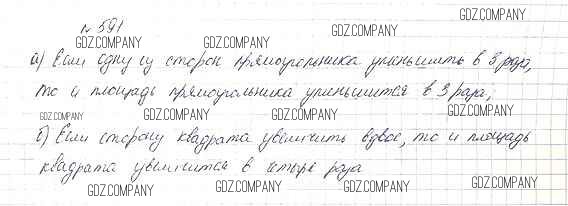 GDZ.COMPANY
№ 591
GDZ.COMPANY GDZ.COMPANY GDZ.COMPANY
а) Если одну из сторон прямоугольника уменьшить в 3 раза,
то и площадь прямоугольника уменьшится в 3 раза;
GDZ.COMPANY GDZ.COMPANY GDZ.COMPANY GDZ.COMPANY
б) Если сторону квадрата увеличить вдвое, то и площадь
квадрата увеличится в четыре раза
GDZ.COMPANY GDZ.COMPANY GDZ.COMPANY GDZ.COMPANY